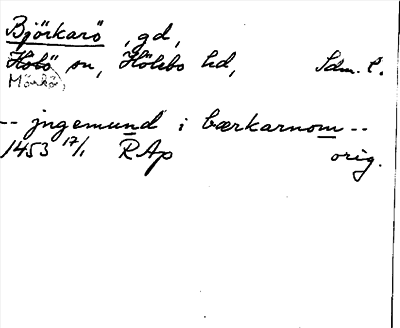 Björkarö, gd,
Hölö sn, Hölebo hd, Sdm. l.
Mörkö,
-- jngemund i bærkarnom --
1453 17/1 RAp orig.